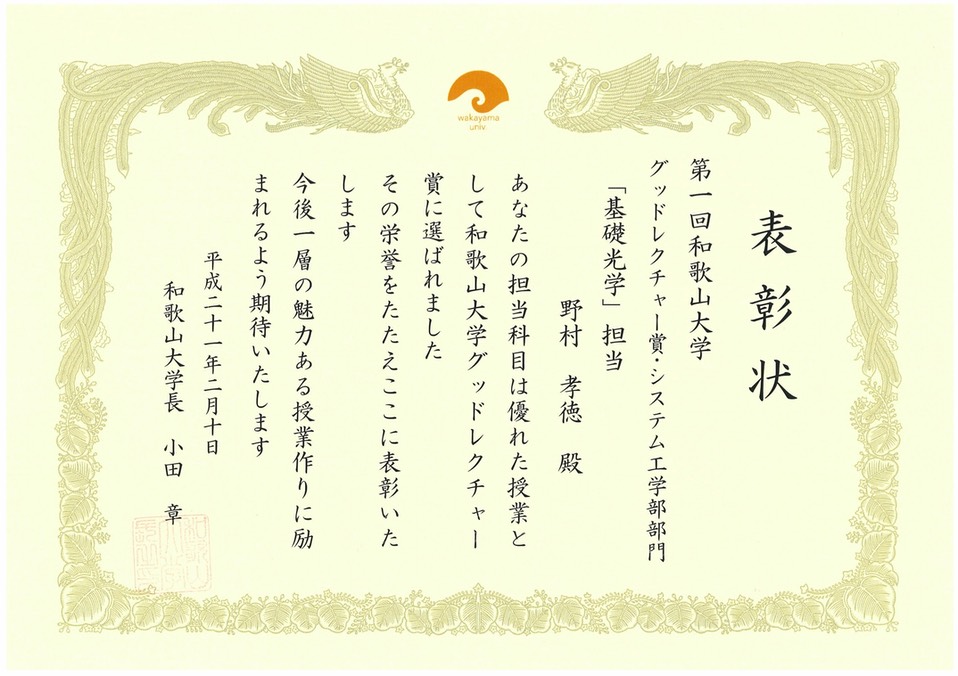 wakayama
univ
表彰状
第一回和歌山大学
グッドレクチャー賞・システム工学部部門
「基礎光学」担当
野村 孝徳 殿
あなたの担当科目は優れた授業と
して和歌山大学グッドレクチャー
賞に選ばれました
その栄誉をたたえここに表彰いた
します
今後一層の魅力ある授業作りに励
まれるよう期待いたします
平成二十一年二月十日
和歌山大学長 小田 章